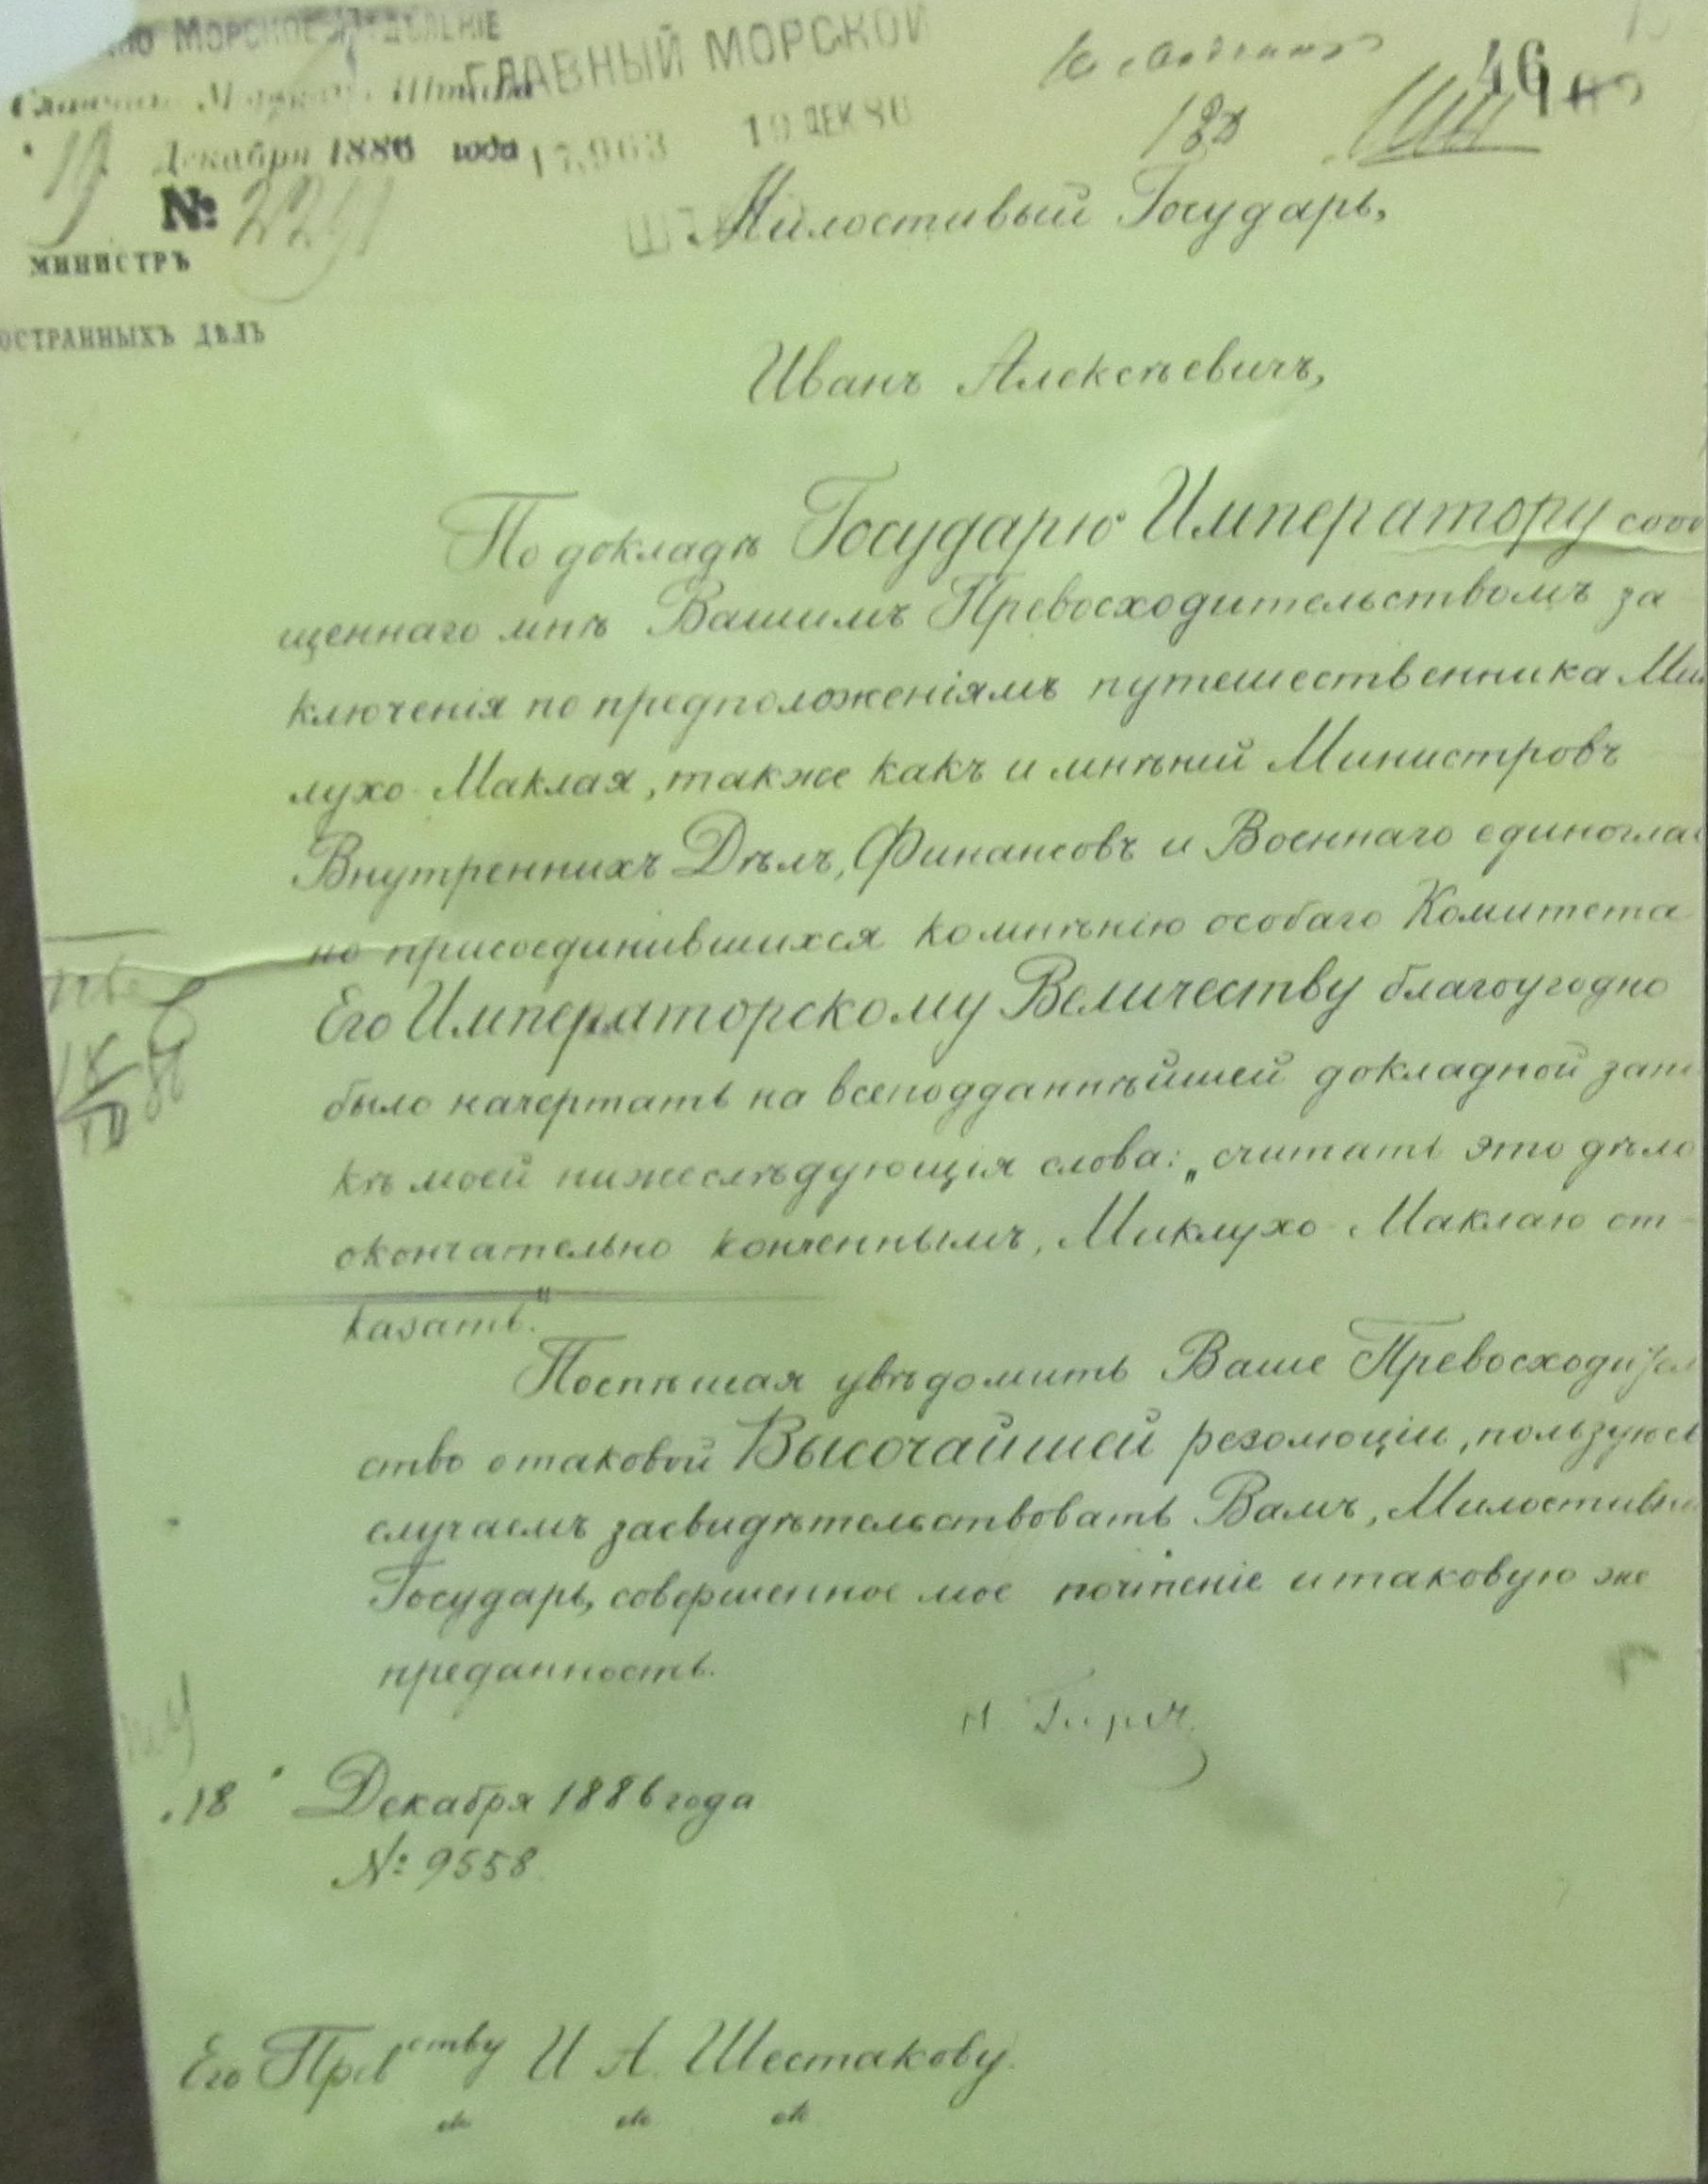 Морское
ГЛАВНЫЙ МОРСКОЙ
46
Штаба
19 Декабря 1886 года
17,963
19 ДЕК 86
№ 2291
МИНИСТРЪ
ОСТРАННЫХЪ ДѢЛЪ
Милостивый Государь,
Иванъ Алексѣевичъ,
По докладѣ Государю Императору сооб
щеннаго мнѣ Вашимъ Превосходительствомъ за
ключенія по предположеніямъ путешественника Мик
лухо-Маклая, также какъ и мнѣній Министровъ
Внутреннихъ Дѣлъ, Финансовъ и Военнаго единоглас
но присоединившихся ко мнѣнію особаго Комитета
Его Императорскому Величеству благоугодно
было начертать на всеподданнѣйшей докладной запи
кѣ моей нижеслѣдующія слова: „считать это дѣло
окончательно конченнымъ, Миклухо-Маклаю от-
казать."
Поспѣшая увѣдомить Ваше Превосходитель
ство о таковой Высочайшей резолюціи, пользуюсь
случаемъ засвидѣтельствовать Вамъ, Милостивый
Государь, совершенное мое почтеніе и таковую же
преданность.
Н. Гирсъ
18 Декабря 1886 года
№ 9558.
Его Прев ству И. А. Шестакову.